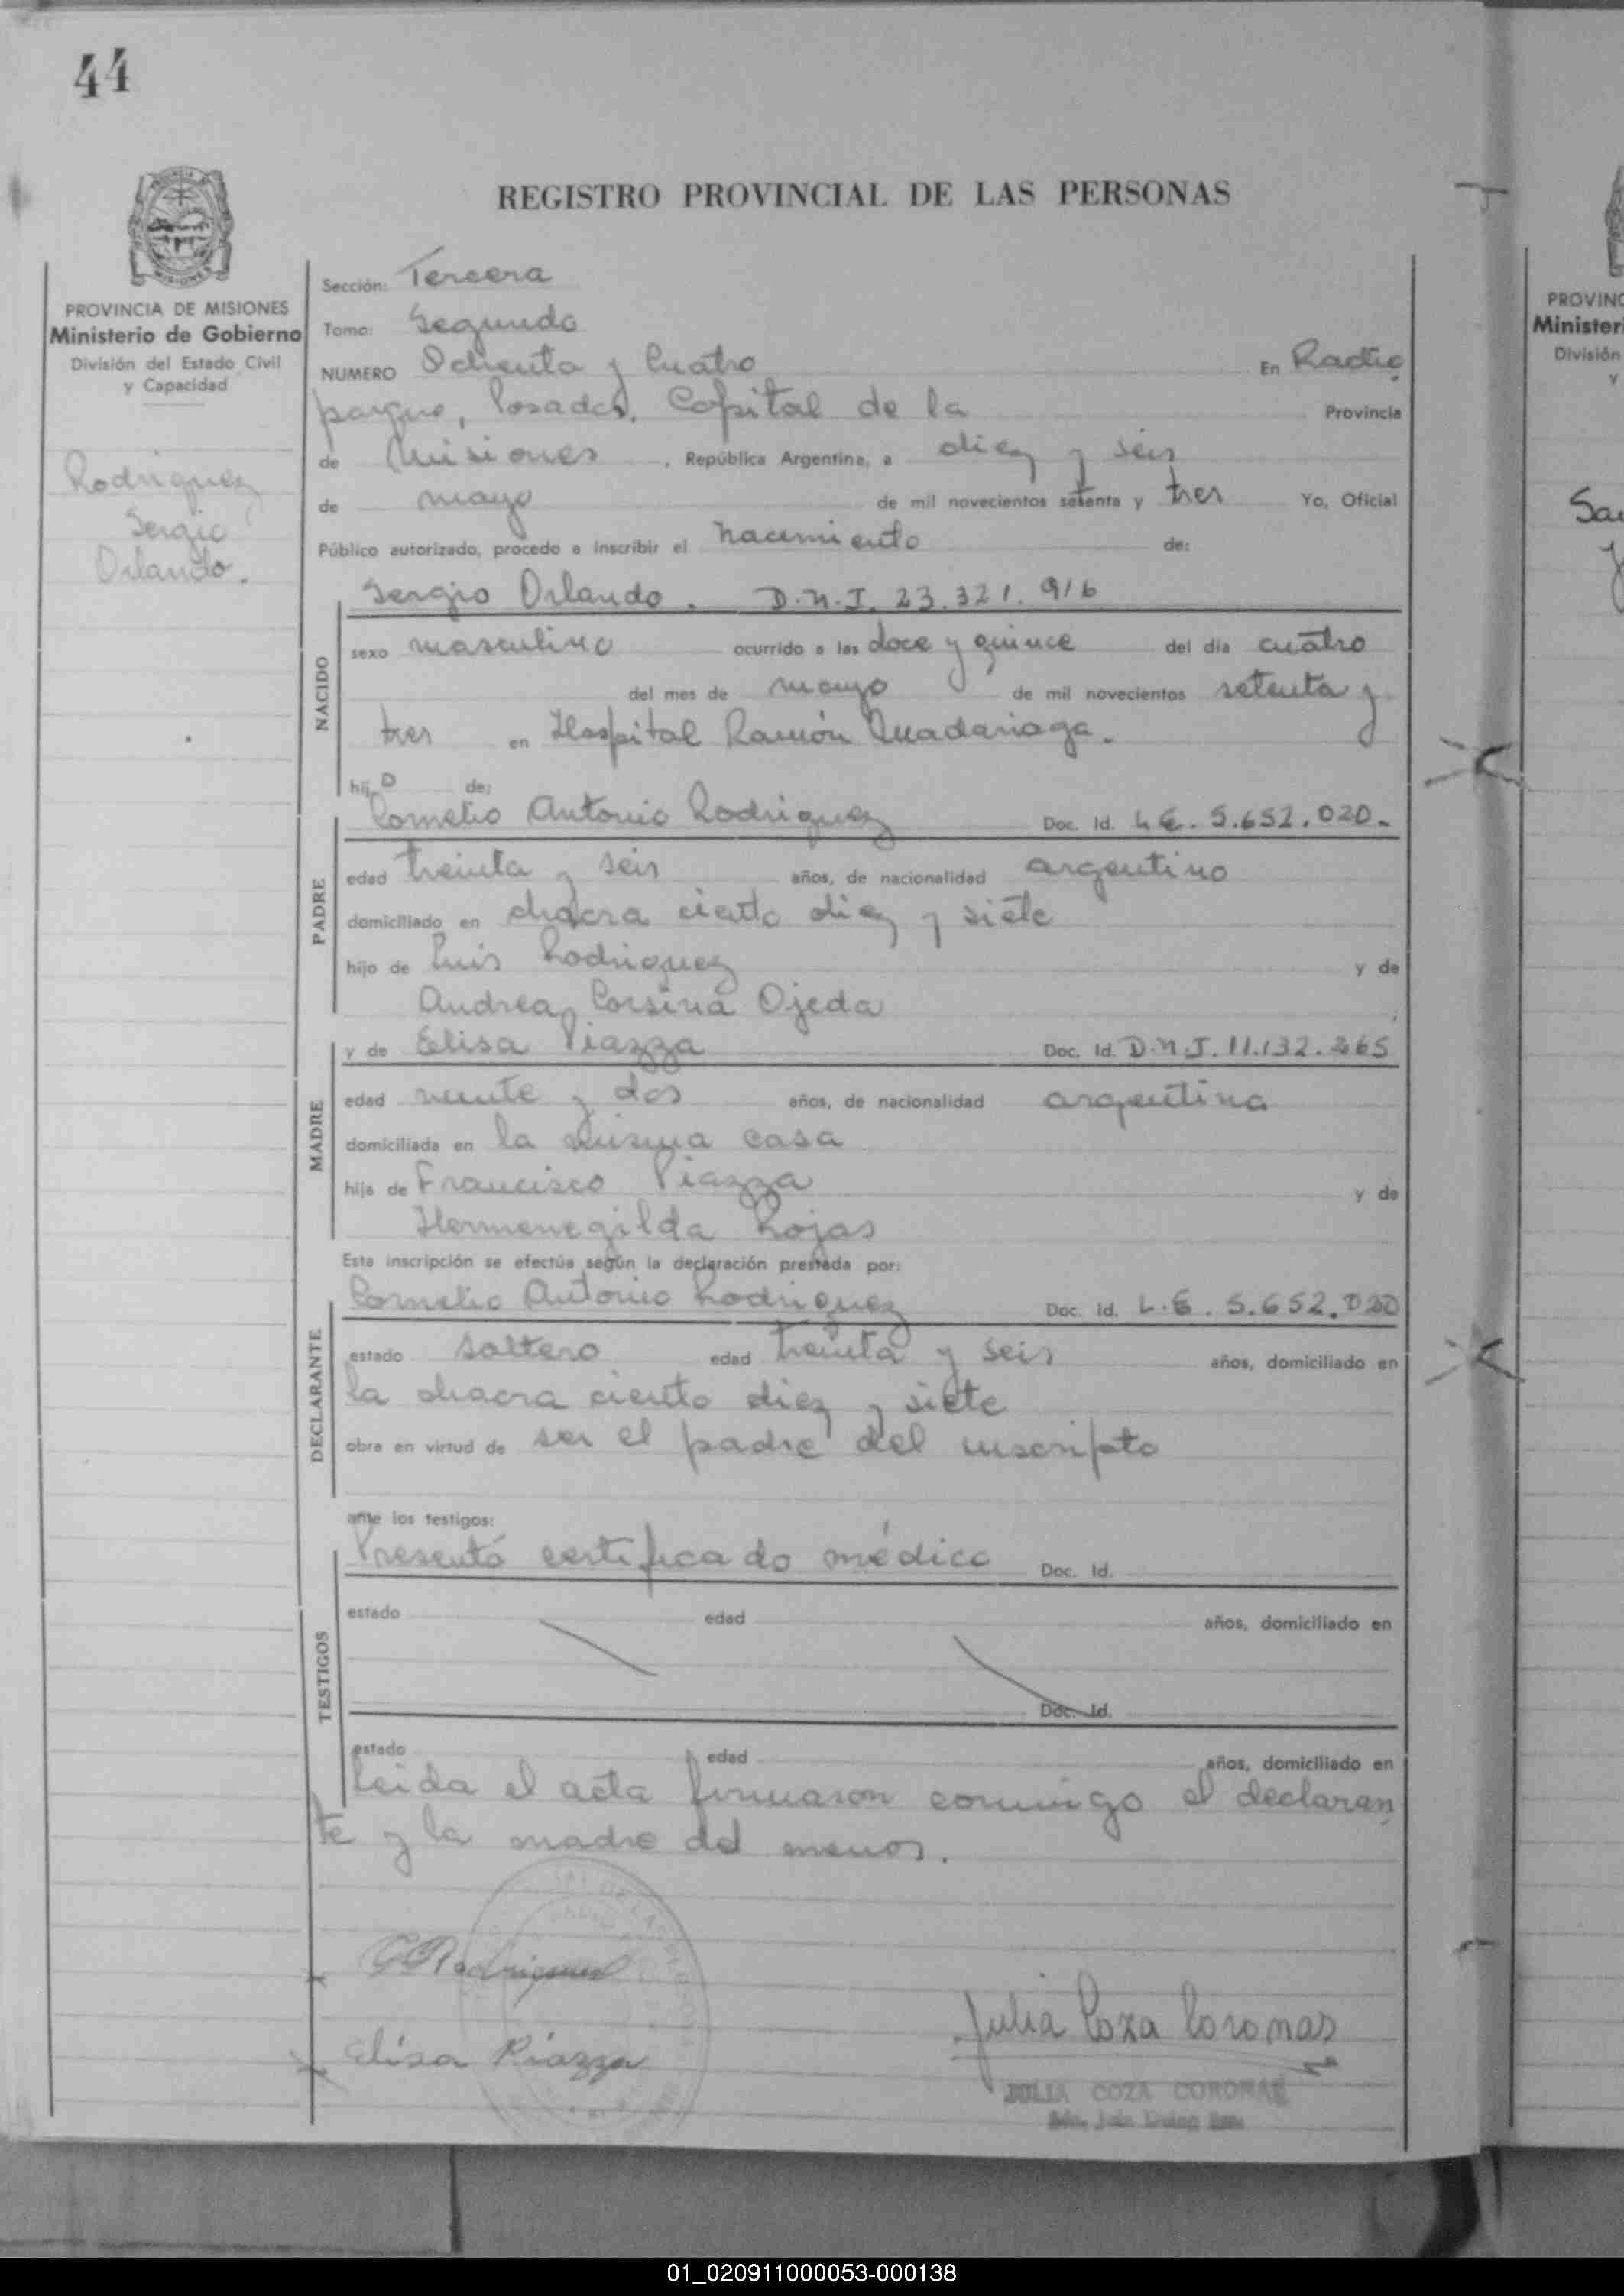 44
REGISTRO PROVINCIAL DE LAS PERSONAS
PROVINCIA DE MISIONES
Ministerio de Gobierno
División del Estado Civil
y Capacidad
Rodriguez
Sergio
Orlando.
Sección: Tercera
Tomo: Segundo
NUMERO Ochenta y Cuatro En Radio
parque, Posadas, Capital de la Provincia
de Misiones, República Argentina, a diez y seis
de mayo de mil novecientos setenta y tres Yo, Oficial
Público autorizado, procedo a inscribir el nacimiento de:
Sergio Orlando. D.N.I. 23.321.916
NACIDO
sexo masculino ocurrido a las doce y quince del día cuatro
del mes de mayo de mil novecientos setenta y
tres en Hospital Ramón Madariaga.
hijo de:
Cornelio Antonio Rodriguez Doc. Id. L.E. 5.652.020.
PADRE
edad treinta y seis años, de nacionalidad argentino
domiciliado en chacra ciento diez y siete
hijo de Luis Rodriguez y de
Andrea Corsina Ojeda
y de Elisa Piazza Doc. Id. D.N.I. 11.132.265
MADRE
edad veinte y dos años, de nacionalidad argentina
domiciliada en la misma casa
hija de Francisco Piazza y de
Hermenegilda Rojas
Esta inscripción se efectúa según la declaración prestada por:
Cornelio Antonio Rodriguez Doc. Id. L.E. 5.652.020
DECLARANTE
estado soltero edad treinta y seis años, domiciliado en
la chacra ciento diez y siete
obra en virtud de ser el padre del inscripto
ante los testigos:
Presentó certificado médico Doc. Id.
TESTIGOS
estado edad años, domiciliado en
Doc. Id.
estado edad años, domiciliado en
Leida el acta firmaron conmigo el declaran
te y la madre del menor.
C Rodriguez
Elisa Piazza
Julia Coza Coronas
JULIA COZA CORONAS
PROVINC
Minister
División
y
01_020911000053-000138